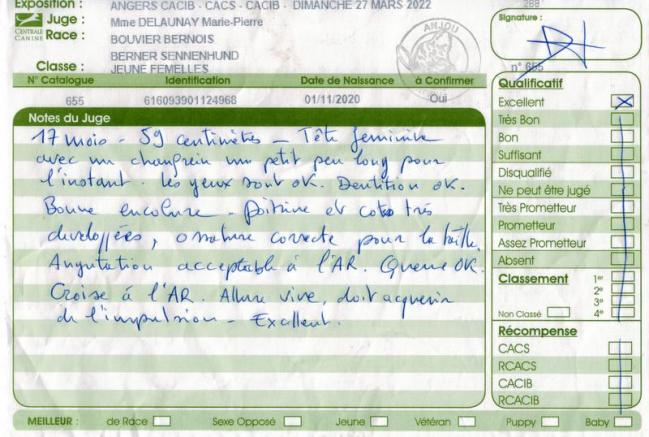 Exposition : ANGERS CACIB - CACS - CACIB - DIMANCHE 27 MARS 2022
288
CENTRALE CANINE
Juge : Mme DELAUNAY Marie-Pierre
Race : BOUVIER BERNOIS
BERNER SENNENHUND
Classe : JEUNE FEMELLES
ANJOU
Signature :
n° 655
N° Catalogue Identification Date de Naissance à Confirmer
655 616093901124968 01/11/2020 Oui
Notes du Juge
17 mois - 59 centimètres - Tête feminine
avec un chanfrein un petit peu long pour
l'instant. Les yeux sont OK. Dentition OK.
Bonne encolure - Poitrine et cotes très
developpées, ossature correcte pour la taille.
Angulation acceptable à l'AR. Queue OK.
Croise à l'AR. Allure vive, doit acquerir
de l'impulsion - Excellent.
Qualificatif
Excellent
Très Bon
Bon
Suffisant
Disqualifié
Ne peut être jugé
Très Prometteur
Prometteur
Assez Prometteur
Absent
Classement 1er
2e
3e
Non Classé 4e
Récompense
CACS
RCACS
CACIB
RCACIB
MEILLEUR : de Race Sexe Opposé Jeune Vétéran Puppy Baby